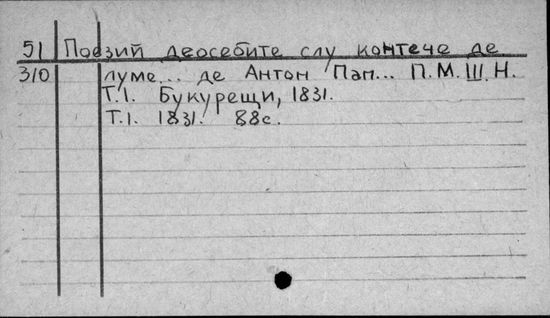 51 Поезий деосебите слу контече де
310 луме... де Антон Пан... П.М.Ш.Н.
Т.1. Букурещи, 1831.
Т.1. 1831. 88с.